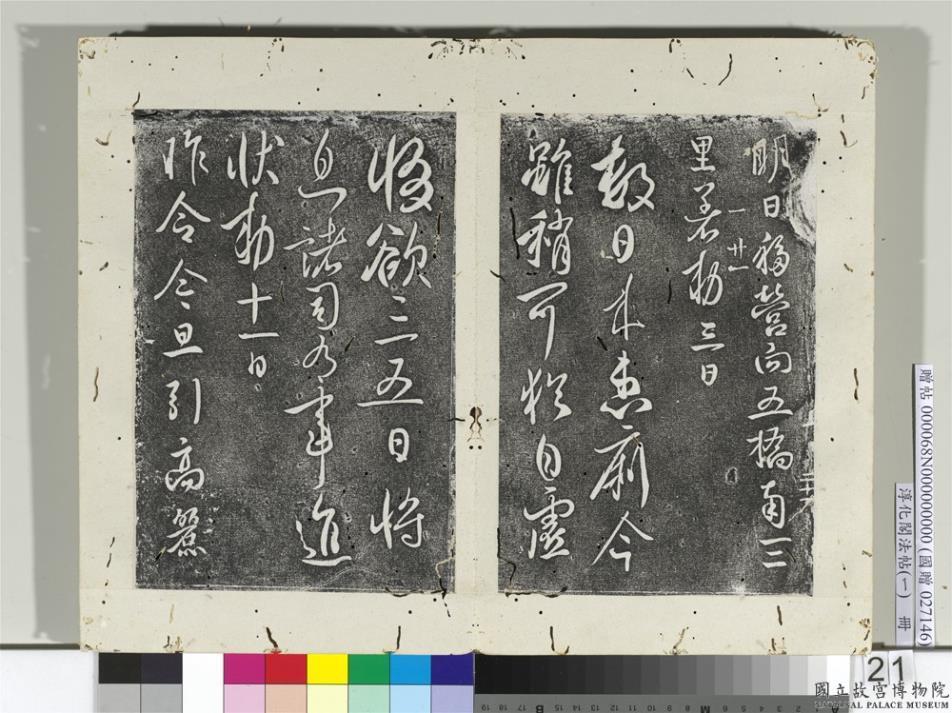 明日移營向五橋南三
一 廿一
里著勅三日
數日來患痢今
雖稍可猶自虛
惙欲三五日將
息諸司有事進
狀勅十一日
昨令今旦引高麗
贈帖 000068N000000000 (國贈 027146)
淳化閣法帖(一) 冊
21
國立故宮博物院
NATIONAL PALACE MUSEUM